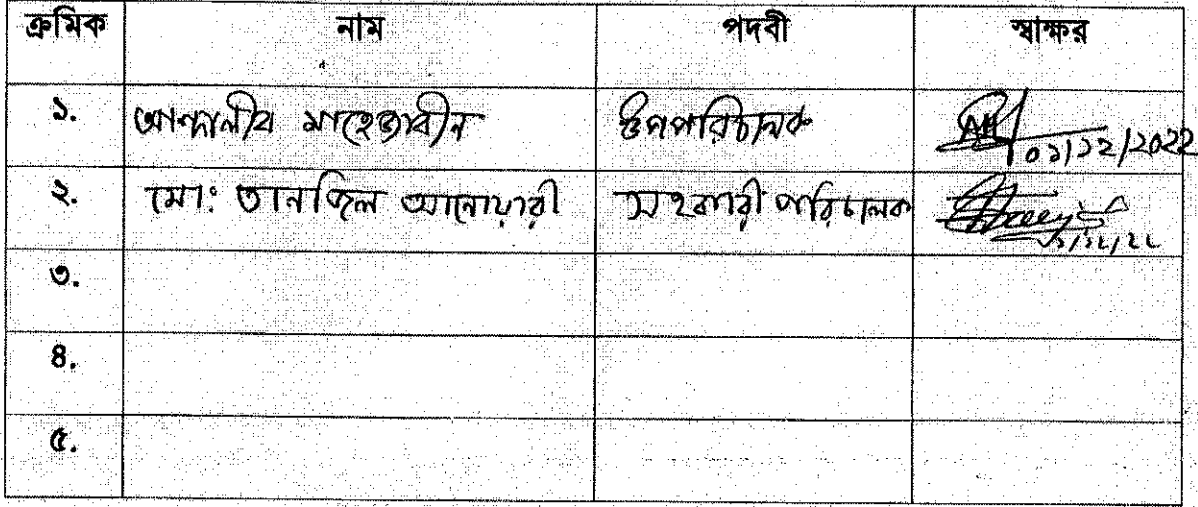 ক্রমিক নাম পদবী স্বাক্ষর
১. আন্দালীব মাহেজাবীন উপপরিচালক ০১/১২/২০২২
২. মো: তানজিল আনোয়ারী সহকারী পরিচালক
৩.
৪.
৫.